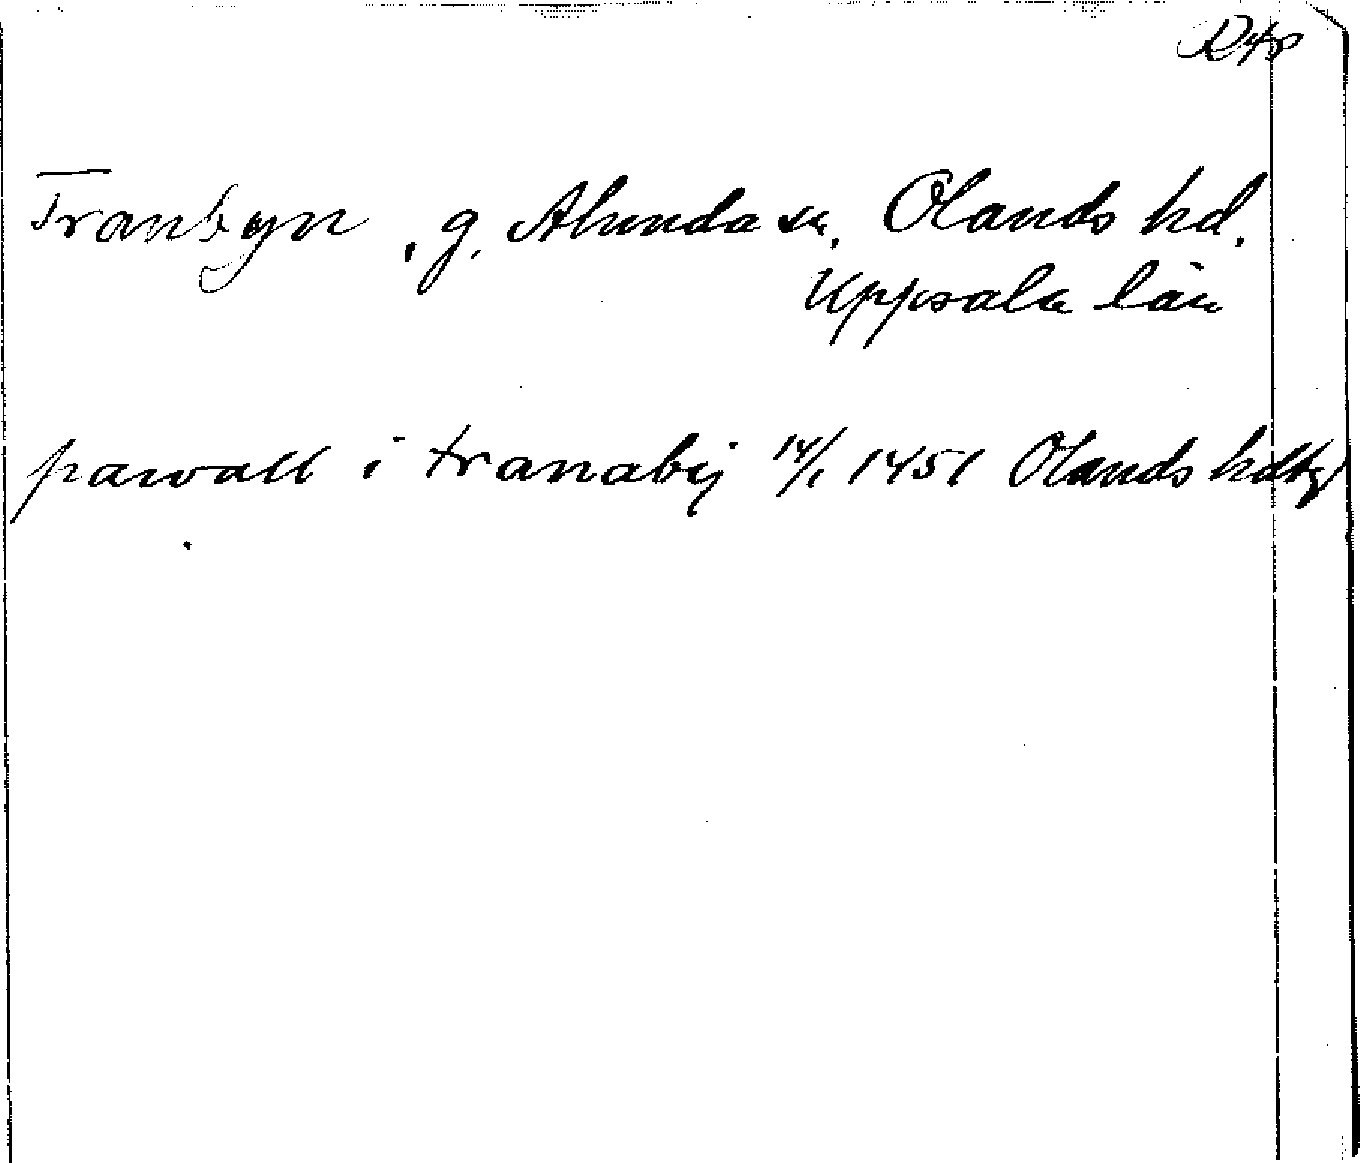 Tranbyn, g. Alunda sn, Olands hd.
Uppsala län
pawall i tranabij 14/1 1451 Olands